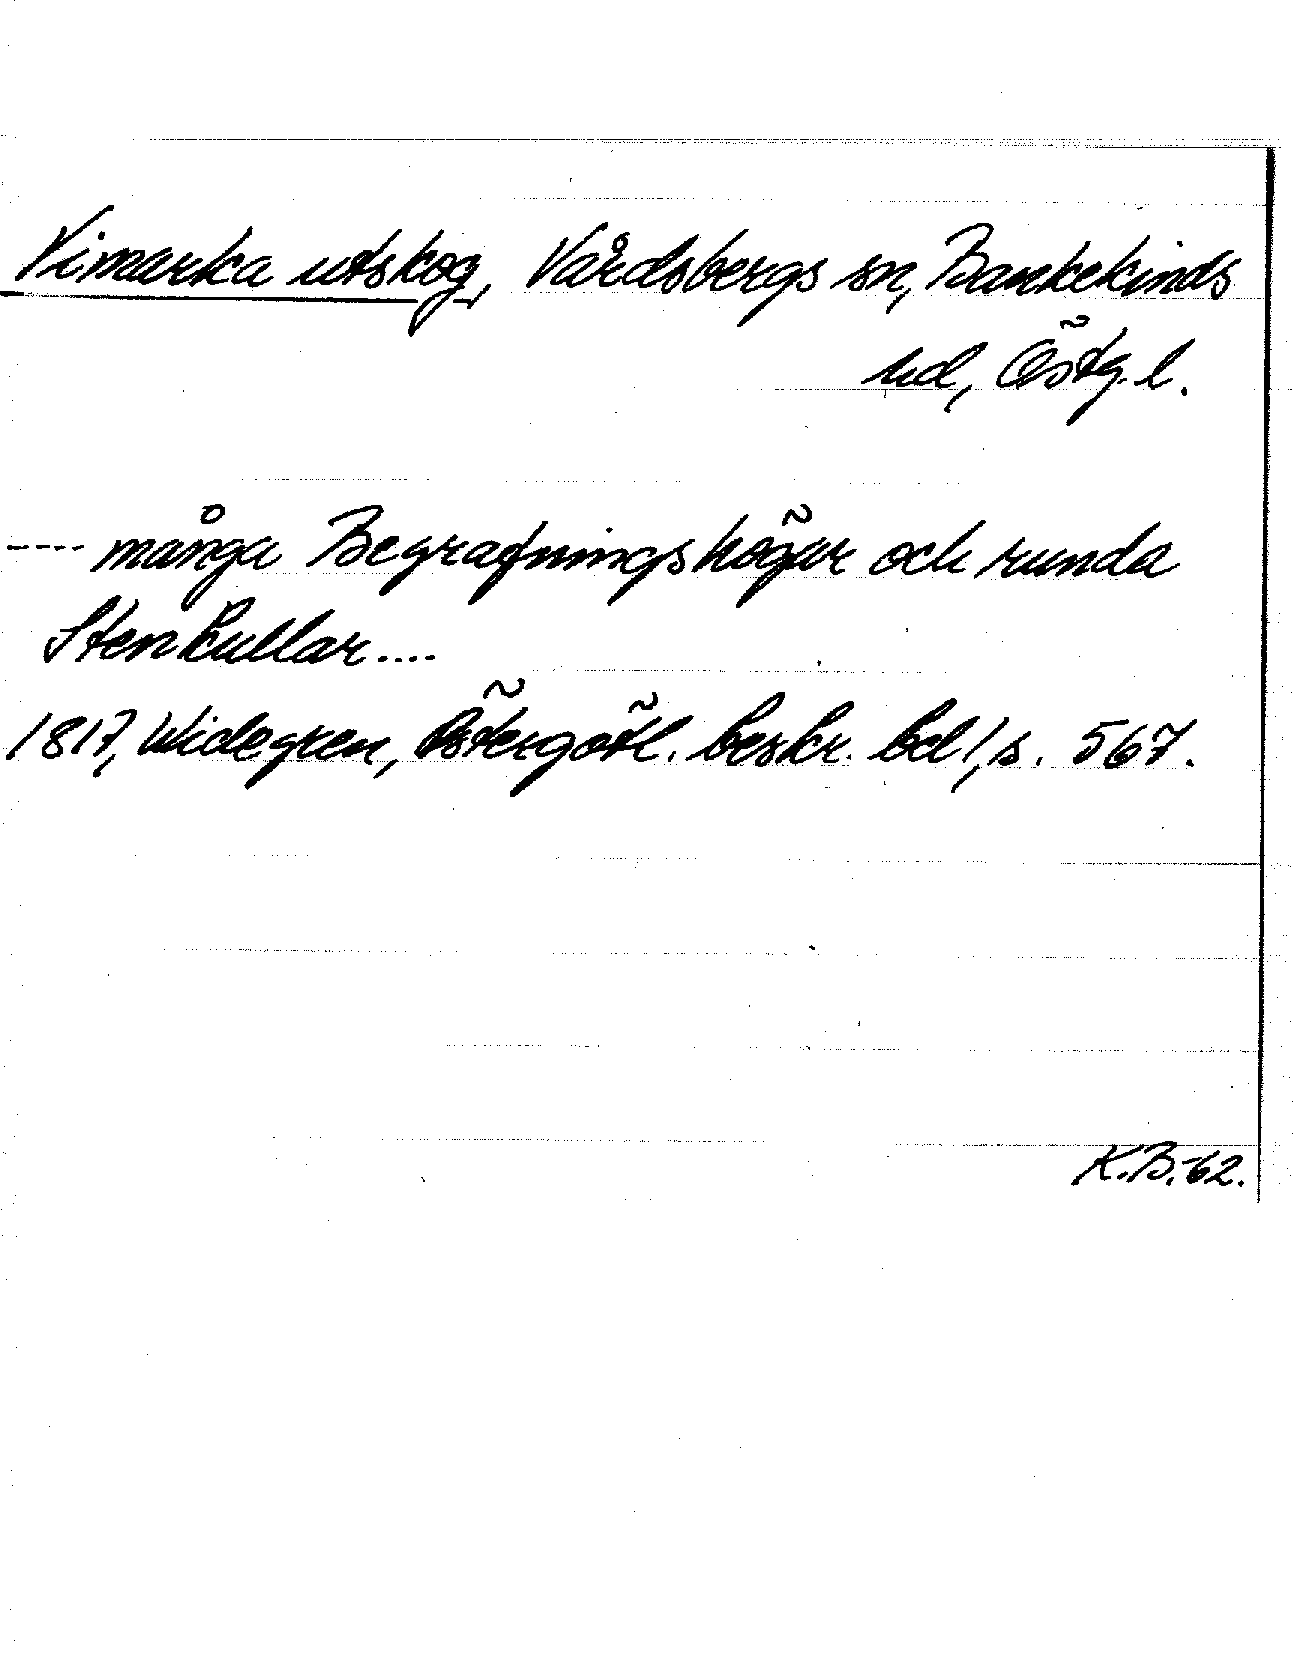 Vimarka utskog, Vårdsbergs sn, Bankekinds
hd, Östg. l.
---- många Begrafningshögar och runda
Stenkullar....
1817, Widegren, Östergötl. beskr. bd 1, s. 567.
K.B.-62.